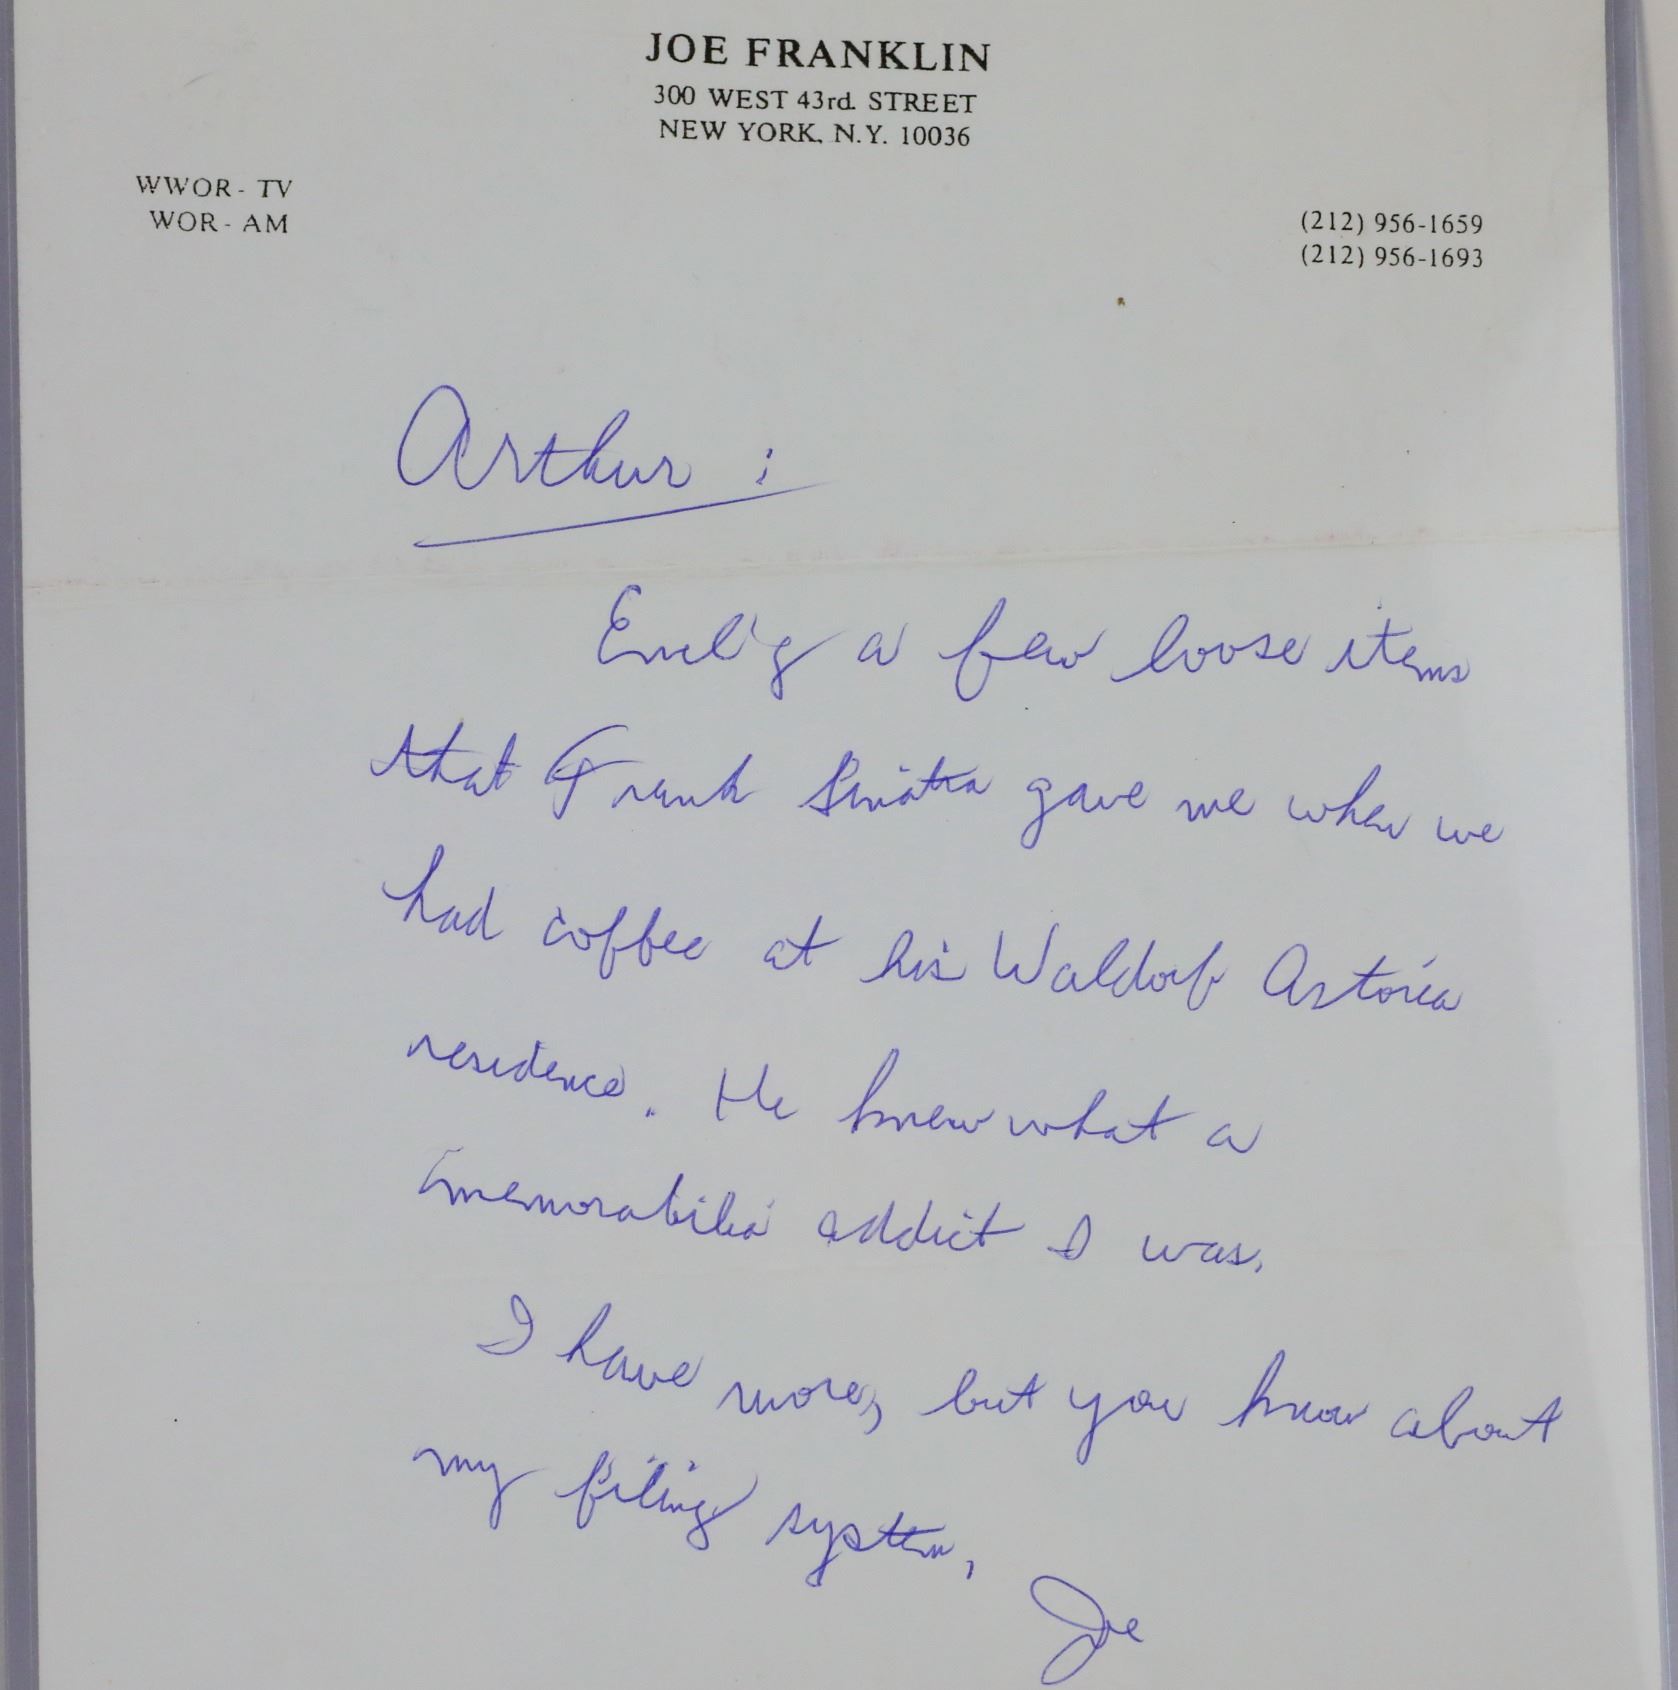 JOE FRANKLIN
300 WEST 43rd. STREET
NEW YORK, N.Y. 10036
WWOR - TV
WOR - AM
(212) 956-1659
(212) 956-1693
Arthur :
Encl'g a few loose items
that Frank Sinatra gave me when we
had coffee at his Waldorf Astoria
residence. He knew what a
memorabilia addict I was.
I have more, but you know about
my filing system,
Joe